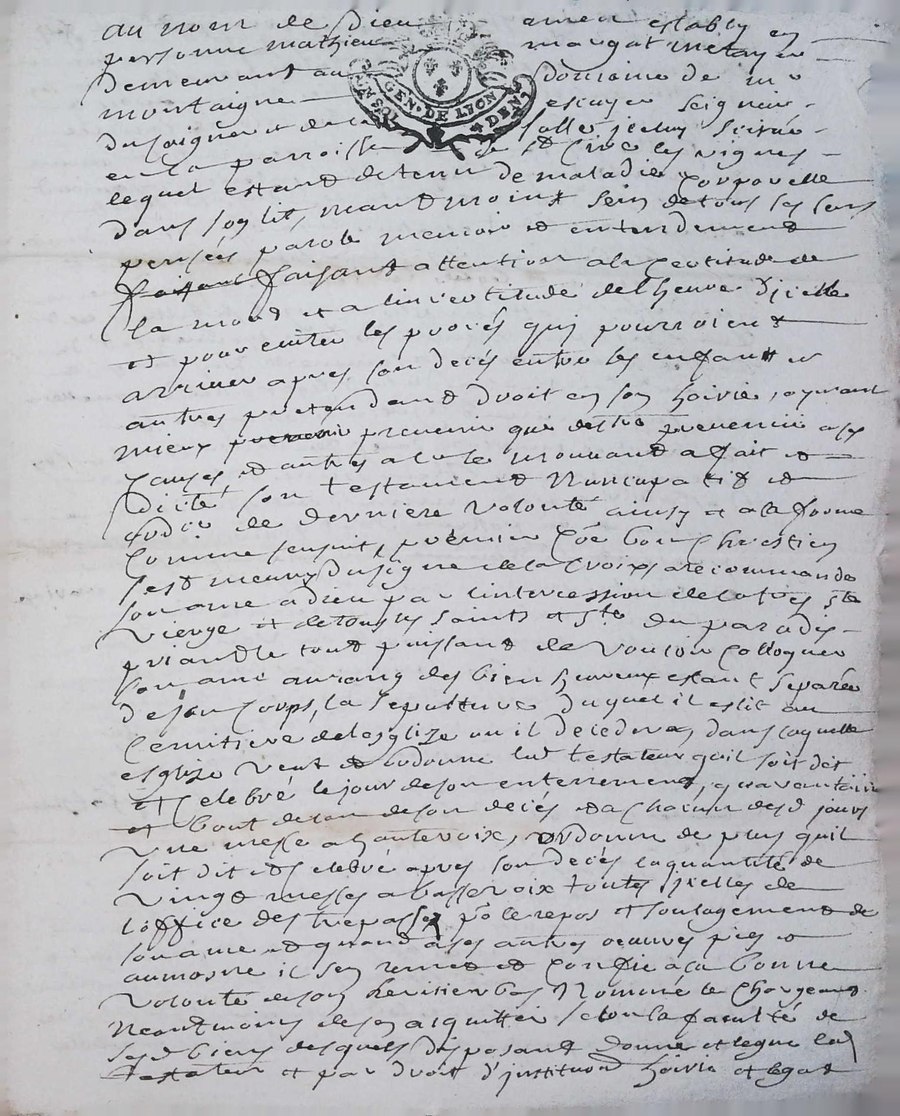 au nom de Dieu amen estably en
personne mathieu margat metayer
demeurant au domaine de mr
montaigne escuyer seigneur
GEN. DE LYON
SOLS DEN
du soignet et de la salle
en la parroisse de st Cire les vignes
lequel estand detenu de maladie Corporelle
dans son lit, neandmoins sein de tous ses sens
pensées parole memoire et entendement
faisant faisant attention a la Certitude de
la mord et a lincertitude de lheure dicelle
et pour eviter les procés qui pourroient
arriver apres son decés entre ses enfants et
autres pretendant droit en son hoirie, ayant
mieux prevenir que destre prevenu a ses
Causes et autres a ce le mouvand a fait et
dicté son testament Nuncupatif et
ordce de derniere volonté ainsy et a la forme
Comme sensuit, premier Coe bon Chrestien
sest meuny du signe de la Croix, a recommandé
son ame a dieu par lintercession de la tres ste
Vierge et de tous les saints et stes du paradis
priand le tout puissant de vouloir Colloquer
son ame au rang des bien heureux estant separée
de son Corps, la sepulture duquel il eslit au
Cemitiere de lesglize ou il decedera, dans laquelle
esglize veut et ordonne led testateur quil soit dit
et Celebré le jour de son enterrement, quarantain
et bout de lan de son decés et a Chacun desd jours
Une messe a hautevoix, ordonne de plus quil
soit dit et Celebré apres son decés la quantité de
vingt messes a bassevoix toutes jcelles de
loffice des trepassés po le repos et soulagement de
son ame et quand a ses autres oeuvres pies et
aumosne il sen remet et Confie a la bonne
volonté de son heritier bas Nommé le Chargeant
Neantmoins de sen acquitter selon la faculté de
sesd biens desquels disposant donne et legue led
testateur et par droit d'jnstitution hoirie et legat